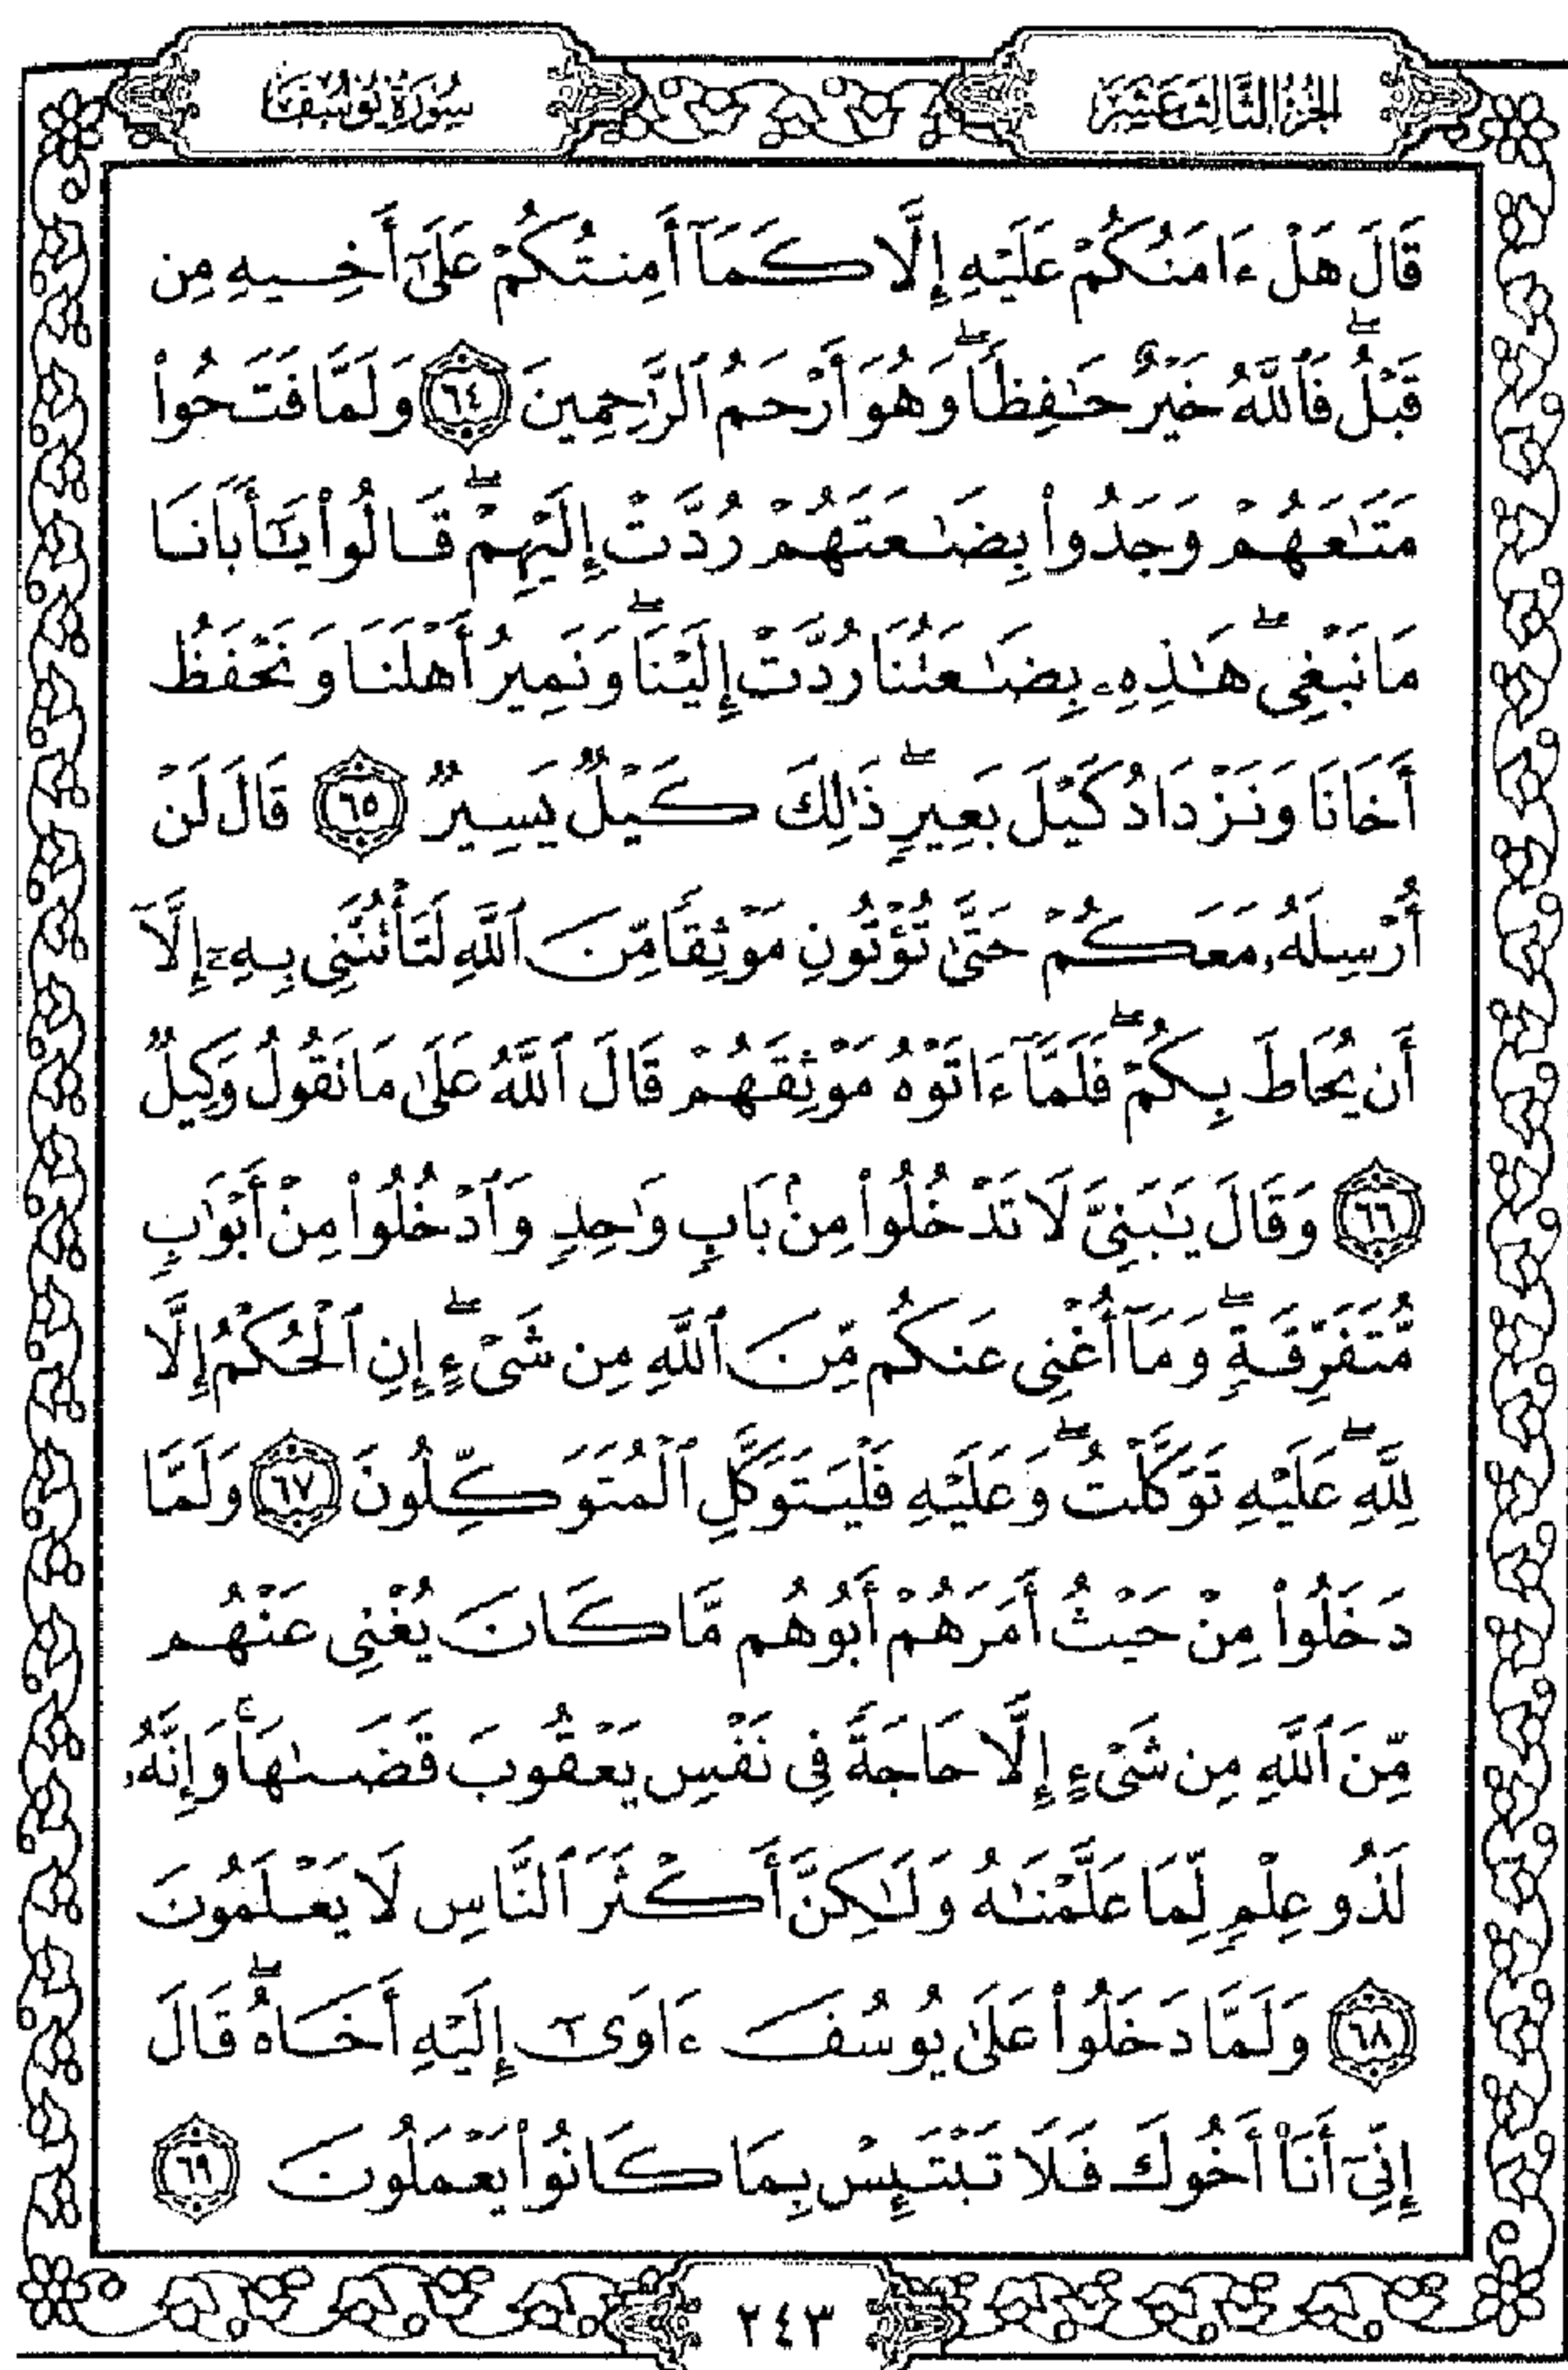 الجزء الثالث عشر
سورة يوسف
قَالَ هَلْ ءَامَنُكُمْ عَلَيْهِ إِلَّا كَمَآ أَمِنتُكُمْ عَلَىٰٓ أَخِيهِ مِن
قَبْلُ ۖ فَٱللَّهُ خَيْرٌ حَـٰفِظًا ۖ وَهُوَ أَرْحَمُ ٱلرَّٰحِمِينَ ٦٤ وَلَمَّا فَتَحُوا۟
مَتَـٰعَهُمْ وَجَدُوا۟ بِضَـٰعَتَهُمْ رُدَّتْ إِلَيْهِمْ ۖ قَالُوا۟ يَـٰٓأَبَانَا
مَا نَبْغِى ۖ هَـٰذِهِۦ بِضَـٰعَتُنَا رُدَّتْ إِلَيْنَا ۖ وَنَمِيرُ أَهْلَنَا وَنَحْفَظُ
أَخَانَا وَنَزْدَادُ كَيْلَ بَعِيرٍ ۖ ذَٰلِكَ كَيْلٌ يَسِيرٌ ٦٥ قَالَ لَنْ
أُرْسِلَهُۥ مَعَكُمْ حَتَّىٰ تُؤْتُونِ مَوْثِقًا مِّنَ ٱللَّهِ لَتَأْتُنَّنِى بِهِۦٓ إِلَّآ
أَن يُحَاطَ بِكُمْ ۖ فَلَمَّآ ءَاتَوْهُ مَوْثِقَهُمْ قَالَ ٱللَّهُ عَلَىٰ مَا نَقُولُ وَكِيلٌ
٦٦ وَقَالَ يَـٰبَنِىَّ لَا تَدْخُلُوا۟ مِنۢ بَابٍ وَٰحِدٍ وَٱدْخُلُوا۟ مِنْ أَبْوَٰبٍ
مُّتَفَرِّقَةٍ ۖ وَمَآ أُغْنِى عَنكُم مِّنَ ٱللَّهِ مِن شَىْءٍ ۖ إِنِ ٱلْحُكْمُ إِلَّا
لِلَّهِ ۖ عَلَيْهِ تَوَكَّلْتُ ۖ وَعَلَيْهِ فَلْيَتَوَكَّلِ ٱلْمُتَوَكِّلُونَ ٦٧ وَلَمَّا
دَخَلُوا۟ مِنْ حَيْثُ أَمَرَهُمْ أَبُوهُم مَّا كَانَ يُغْنِى عَنْهُم
مِّنَ ٱللَّهِ مِن شَىْءٍ إِلَّا حَاجَةً فِى نَفْسِ يَعْقُوبَ قَضَىٰهَا ۚ وَإِنَّهُۥ
لَذُو عِلْمٍ لِّمَا عَلَّمْنَـٰهُ وَلَـٰكِنَّ أَكْثَرَ ٱلنَّاسِ لَا يَعْلَمُونَ
٦٨ وَلَمَّا دَخَلُوا۟ عَلَىٰ يُوسُفَ ءَاوَىٰٓ إِلَيْهِ أَخَاهُ ۖ قَالَ
إِنِّىٓ أَنَا۠ أَخُوكَ فَلَا تَبْتَئِسْ بِمَا كَانُوا۟ يَعْمَلُونَ ٦٩
٢٤٣